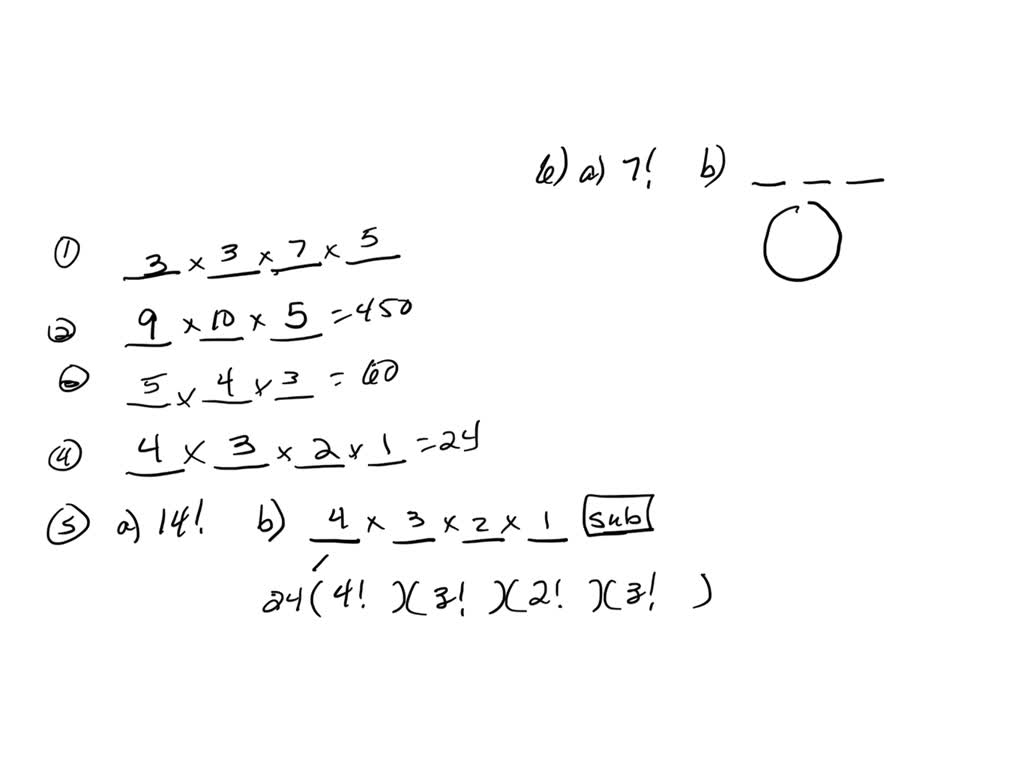 6) a) 7! b) _ _ _
① 3 × 3 × 7 × 5
② 9 × 10 × 5 = 450
5 × 4 × 3 = 60
④ 4 × 3 × 2 × 1 = 24
⑤ a) 14! b) 4 × 3 × 2 × 1 sub
24(4! )(3! )(2! )(3! )